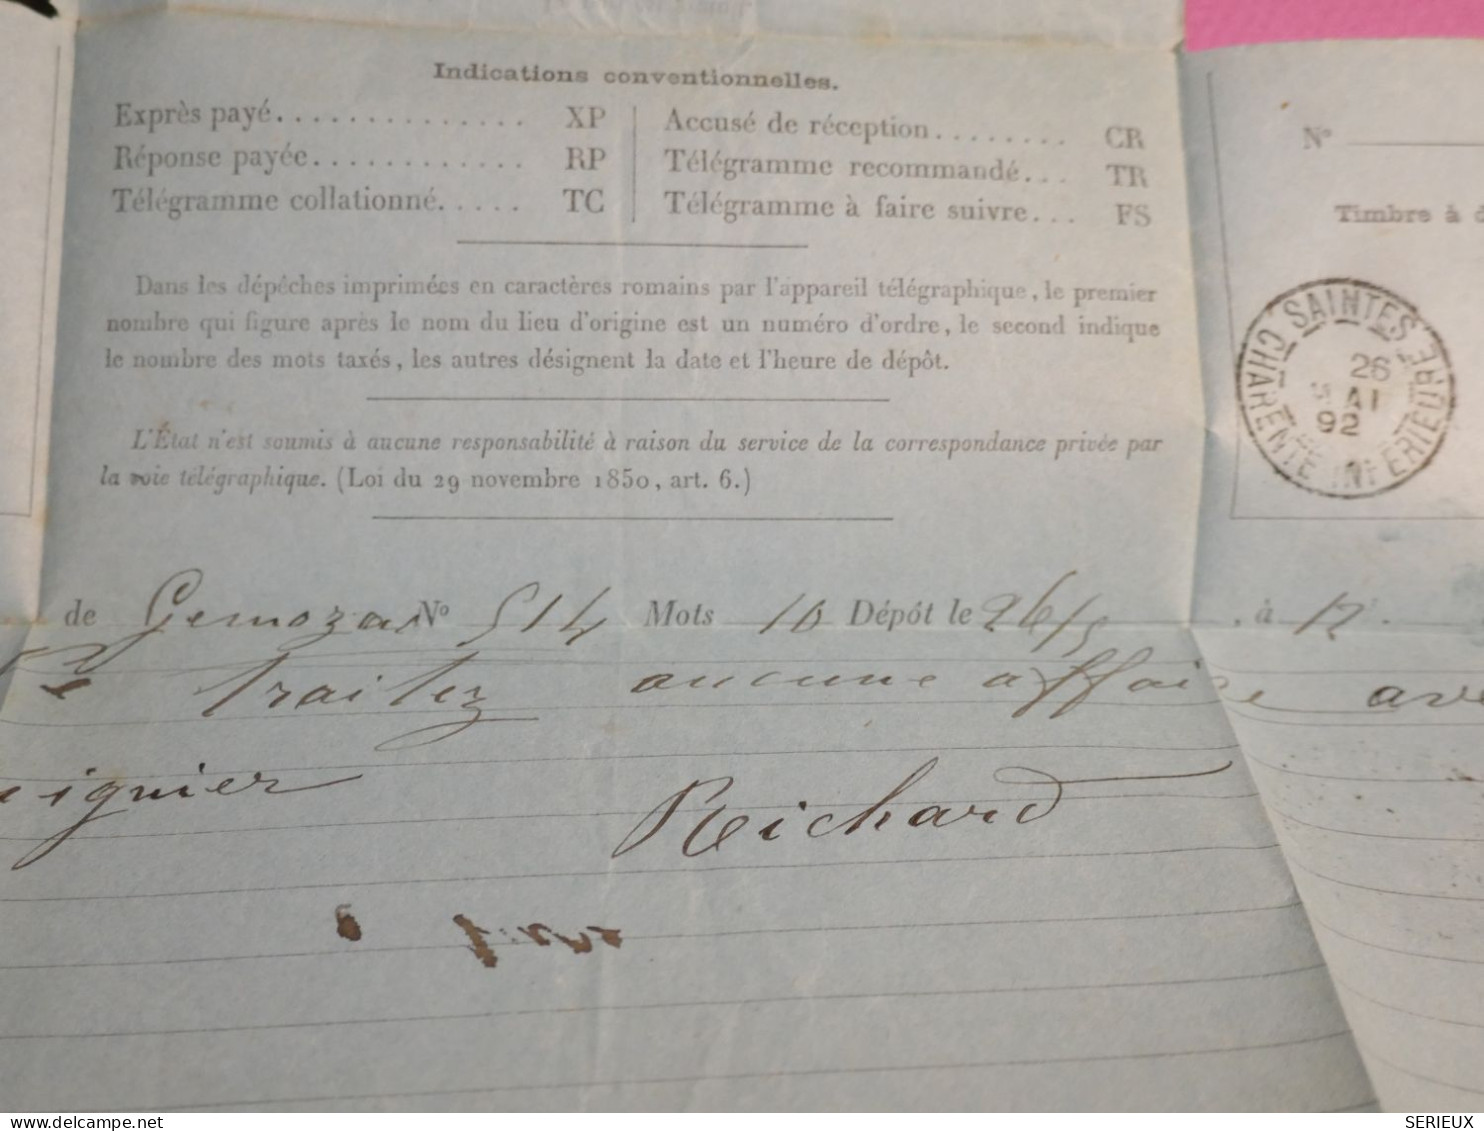 Indications conventionnelles.
Exprès payé.............. XP
Réponse payée............ RP
Télégramme collationné..... TC
Accusé de réception........ CR
Télégramme recommandé... TR
Télégramme à faire suivre... FS
Dans les dépêches imprimées en caractères romains par l'appareil télégraphique, le premier
nombre qui figure après le nom du lieu d'origine est un numéro d'ordre, le second indique
le nombre des mots taxés, les autres désignent la date et l'heure de dépôt.
L'État n'est soumis à aucune responsabilité à raison du service de la correspondance privée par
la voie télégraphique. (Loi du 29 novembre 1850, art. 6.)
N°
Timbre à d
SAINTES
CHARENTE INFÉRIEURE
26
MAI
92
de Gemozac N° 514 Mots 10 Dépôt le 26/5, à 12
traitez aucune affaire ave
ignier
Richard
SERIEUX